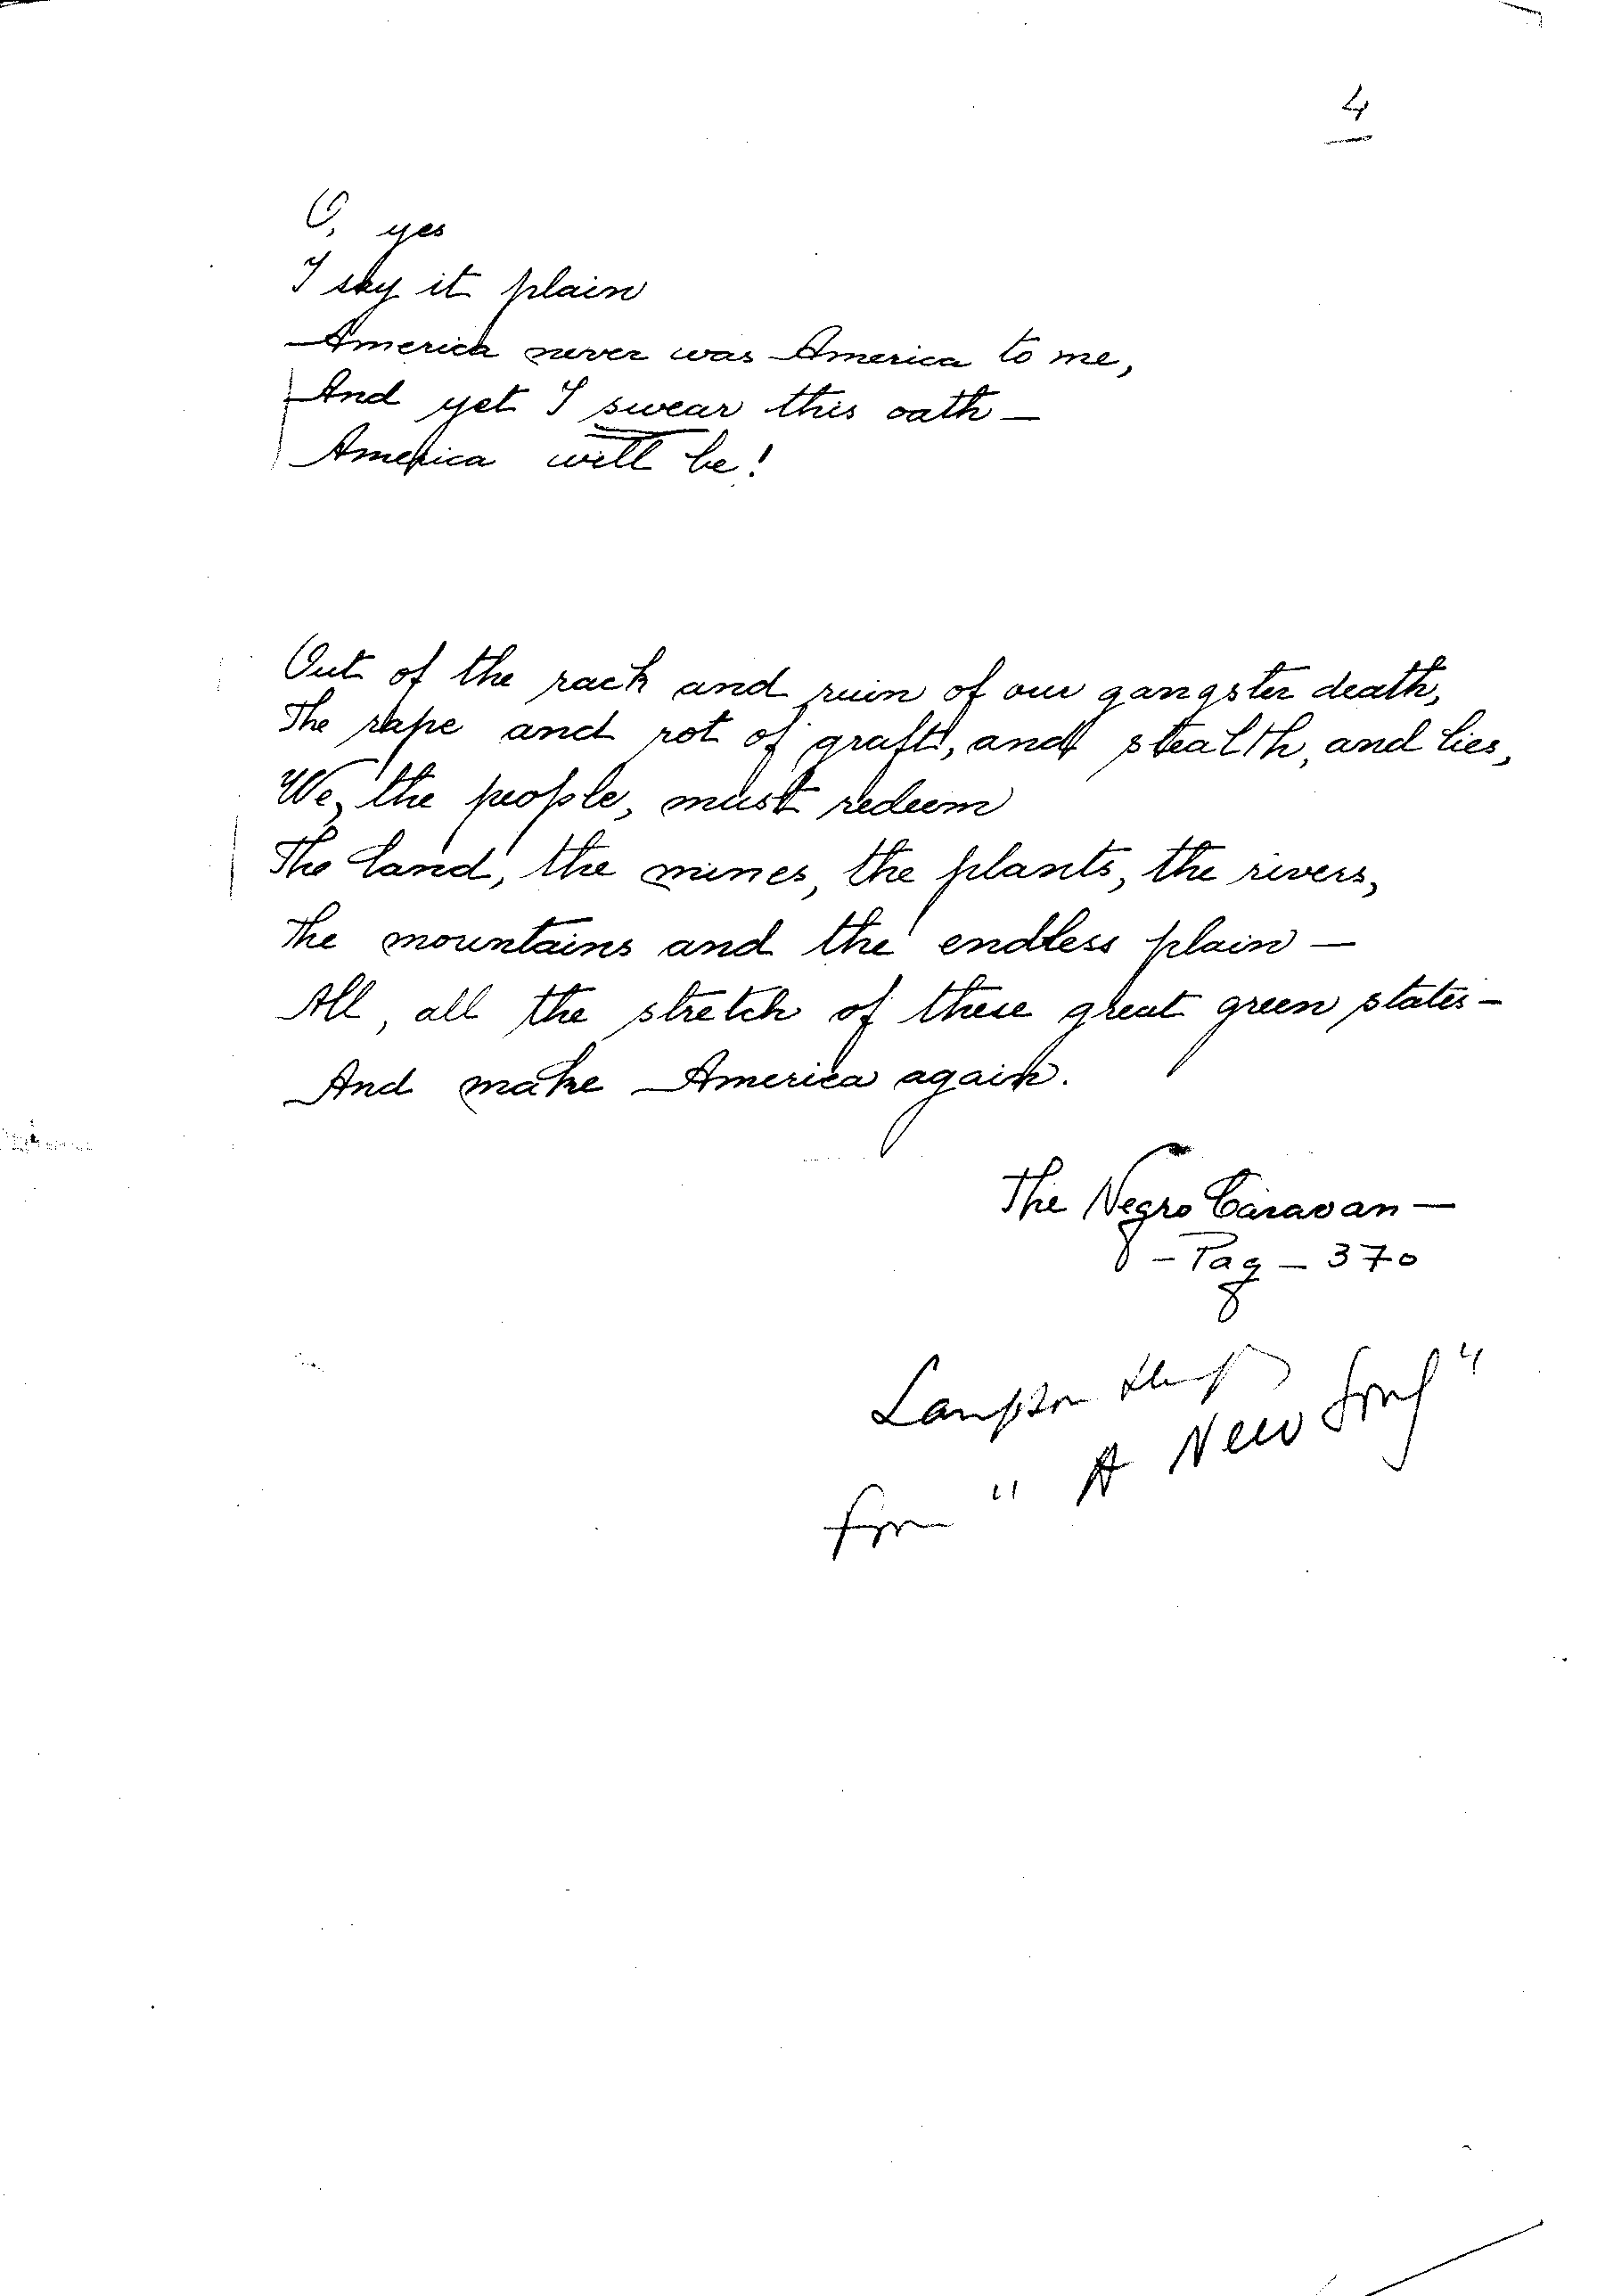 4
O, yes
I say it plain
America never was America to me,
And yet I swear this oath —
America will be!
Out of the rack and ruin of our gangster death,
The rape and rot of graft, and stealth, and lies,
We, the people, must redeem
The land, the mines, the plants, the rivers,
The mountains and the endless plain —
All, all the stretch of these great green states -
And make America again.
The Negro Caravan —
- Pag - 370
Langston Hughes
from " A New Song "